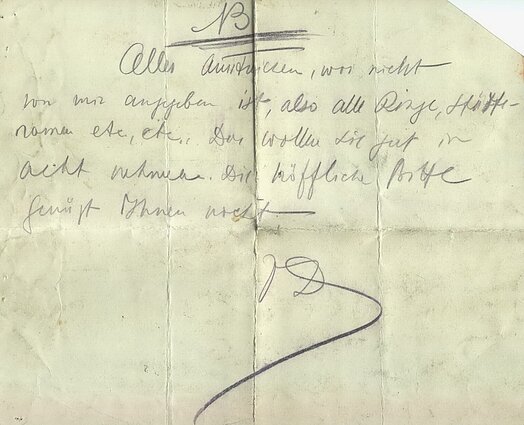 NB
Alles ausstreichen, was nicht
von mir angegeben ist, also alle Ringe, Städte-
namen etc, etc.. Das wollen Sie gut in
acht nehmen. Die höffliche Bitte
genügt Ihnen nicht